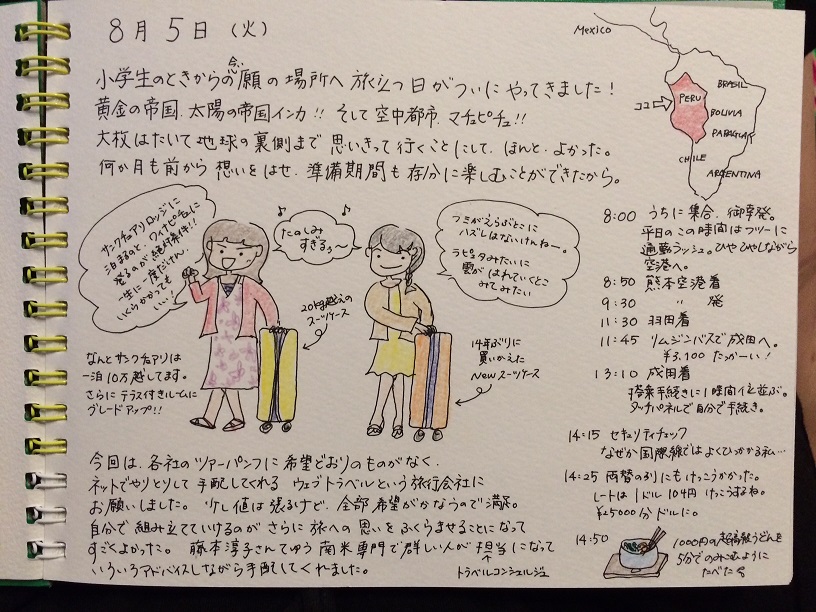 8月5日(火)
小学生のときからの念願の場所へ旅立つ日がついにやってきました!
黄金の帝国、太陽の帝国インカ!! そして空中都市、マチュピチュ!!
大枚はたいて地球の裏側まで思いきって行くことにして、ほんと、よかった。
何か月も前から想いをはせ、準備期間も存分に楽しむことができたから。
Mexico
ココ
PERU
BRASIL
BOLIVIA
PARAGUAY
CHILE
ARGENTINA
サンクチュアリロッジに
泊まるのと、ワイナピチュに
登るのが絶対条件!!
一生に一度だけん、
いくらかかっても
いい!
たのしみ
すぎるぅ〜
フミがえらぶとこに
ハズレはないけんねー。
ラピュタみたいに
雲がはれていくとこ
みてみたい
20kg越えの
スーツケース
14年ぶりに
買いかえた
Newスーツケース
なんとサンクチュアリは
一泊10万越してます。
さらにテラス付きルームに
グレードアップ!!
8:00 うちに集合、御幸発。
平日のこの時間はフツーに
通勤ラッシュ。ひやひやしながら
空港へ。
8:50 熊本空港着
9:30 〃 発
11:30 羽田着
11:45 リムジンバスで成田へ。
¥3,100 たっかーい!
13:10 成田着
搭乗手続きに1時間位並ぶ。
タッチパネルで自分で手続き。
14:15 セキュリティチェック
なぜか国際線ではよくひっかかる私…
14:25 両替の列にもけっこうかかった。
レートは1ドル104円 けっこうするね。
¥25000分ドルに。
14:50 1000円の超高級うどんを
5分でのみこむように
たべた
今回は、各社のツアーパンフに希望どおりのものがなく、
ネットでやりとりして手配してくれるウェブトラベルという旅行会社に
お願いしました。少し値は張るけど、全部希望がかなうので満足。
自分で組み立てていけるのがさらに旅への思いをふくらませることになって
すごくよかった。藤本淳子さんてゆう南米専門で詳しい人が担当になって
いろいろアドバイスしながら手配してくれました。
トラベルコンシェルジュ